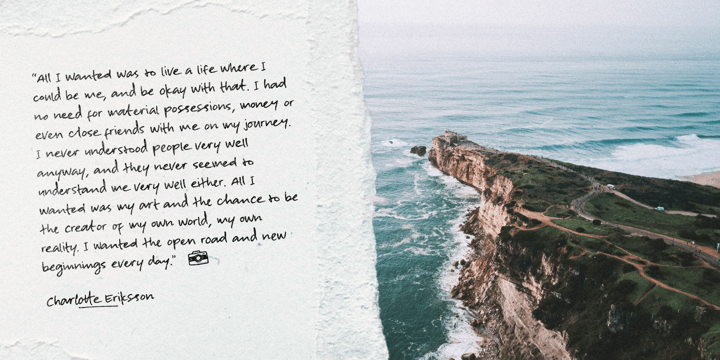 "All I wanted was to live a life where I
could be me, and be okay with that. I had
no need for material possessions, money or
even close friends with me on my journey.
I never understood people very well
anyway, and they never seemed to
understand me very well either. All I
wanted was my art and the chance to be
the creator of my own world, my own
reality. I wanted the open road and new
beginnings every day."
Charlotte Eriksson